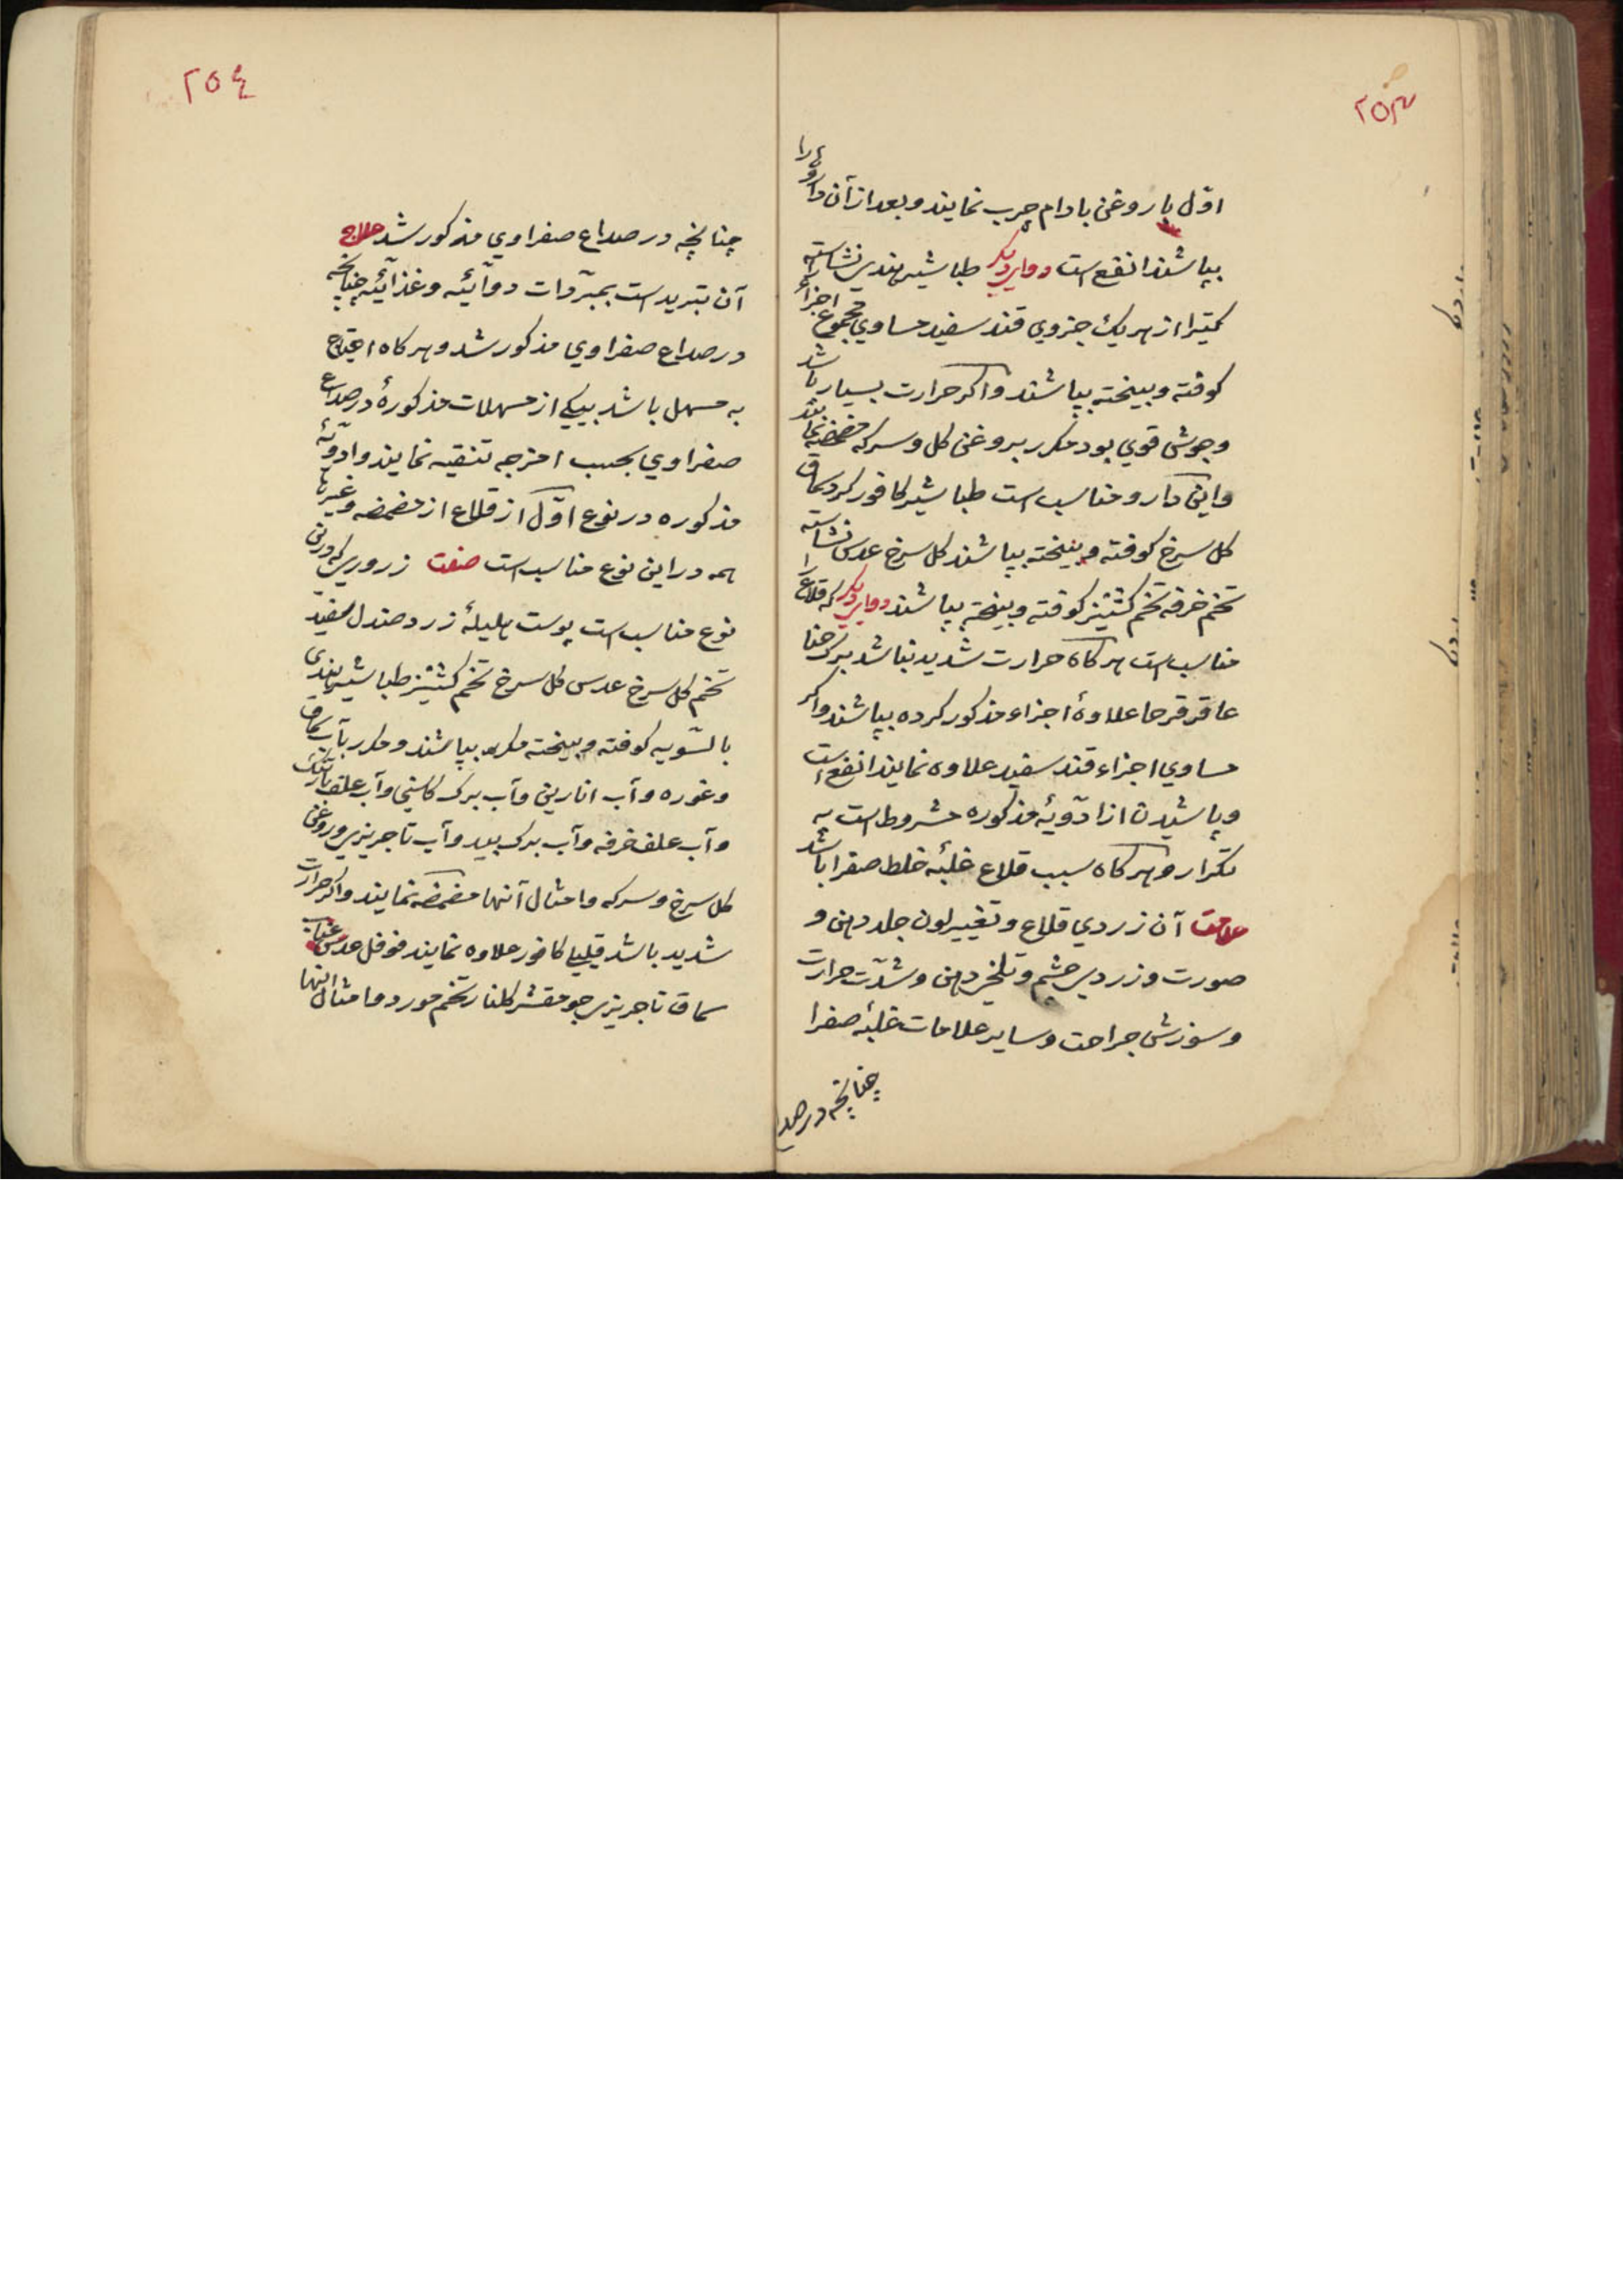 ۲۵۳
اوّل با روغن بادام چرب نمایند و بعد از آن داروها را
بپاشند انفع است دوای دیگر طباشیر هندی نشاسته
کتیرا از هر یك جزوي قند سفید مساوي مجموع اجزاء
کوفته و بیخته بپاشند واکر حرارت بسیار باشد
وجوشش قوي بود مکرر بروغن کل و سرکه مضمضه نمایند
واین دارو مناسب است طباشیر کافور کرد سماق
کل سرخ کوفته و بیخته بپاشند کل سرخ عدس نشاسته
تخم خرفه تخم کشنیز کوفته و بیخته بپاشند دوای دیگر که قلاع را
مناسب است هر کاه حرارت شدید نباشد برک حنا
عاقر قرحا علاوۀ اجزاء مذکور کرده بپاشند واکر
مساوي اجزاء قند سفید علاوه نمایند انفع است
وپاشیدن از ادویۀ مذکوره مشروط است به
تکرار و هر کاه سبب قلاع غلبۀ خلط صفرا باشد
علامت آن زردي قلاع و تغییر لون جلد دهن و
صورت وزردی چشم و تلخی دهن و شدّت حرارت
و سوزش جراحت و سایر علامات غلبۀ صفرا
چنانچه در صد
۲۵٤
چنانچه در صداع صفراوي مذکور شد علاج
آن تبرید است بمبرّدات دوائیّه و غذائیّه چنانچه
در صداع صفراوي مذکور شد و هر کاه احتیاج
به مسهل باشد بیکی از مسهلات مذکورۀ در صداع
صفراوي بحسب امزجه تنقیه نمایند و ادویۀ
مذکوره در نوع اوّل از قلاع از مضمضه و غیرها
همه در این نوع مناسب است صفت زروری که در این
نوع مناسب است پوست هلیلۀ زرد صندل سفید
تخم کل سرخ عدس کل سرخ تخم کشنیز طباشیر هندی
بالسّویه کوفته و بیخته مکرر بپاشند و مکرر بآب سماق
وغوره وآب انارین وآب برک کاسني وآب علف بارتنک
وآب علف خرفه وآب برک بید وآب تاجریزی و روغن
کل سرخ و سرکه وامثال آنها مضمضه نمایند واکر حرارت
شدید باشد قلیلی کافور علاوه نمایند فوفل عدس عناب
سماق تاجریزی جو مقشر کلنار تخم مورد وامثال اینها